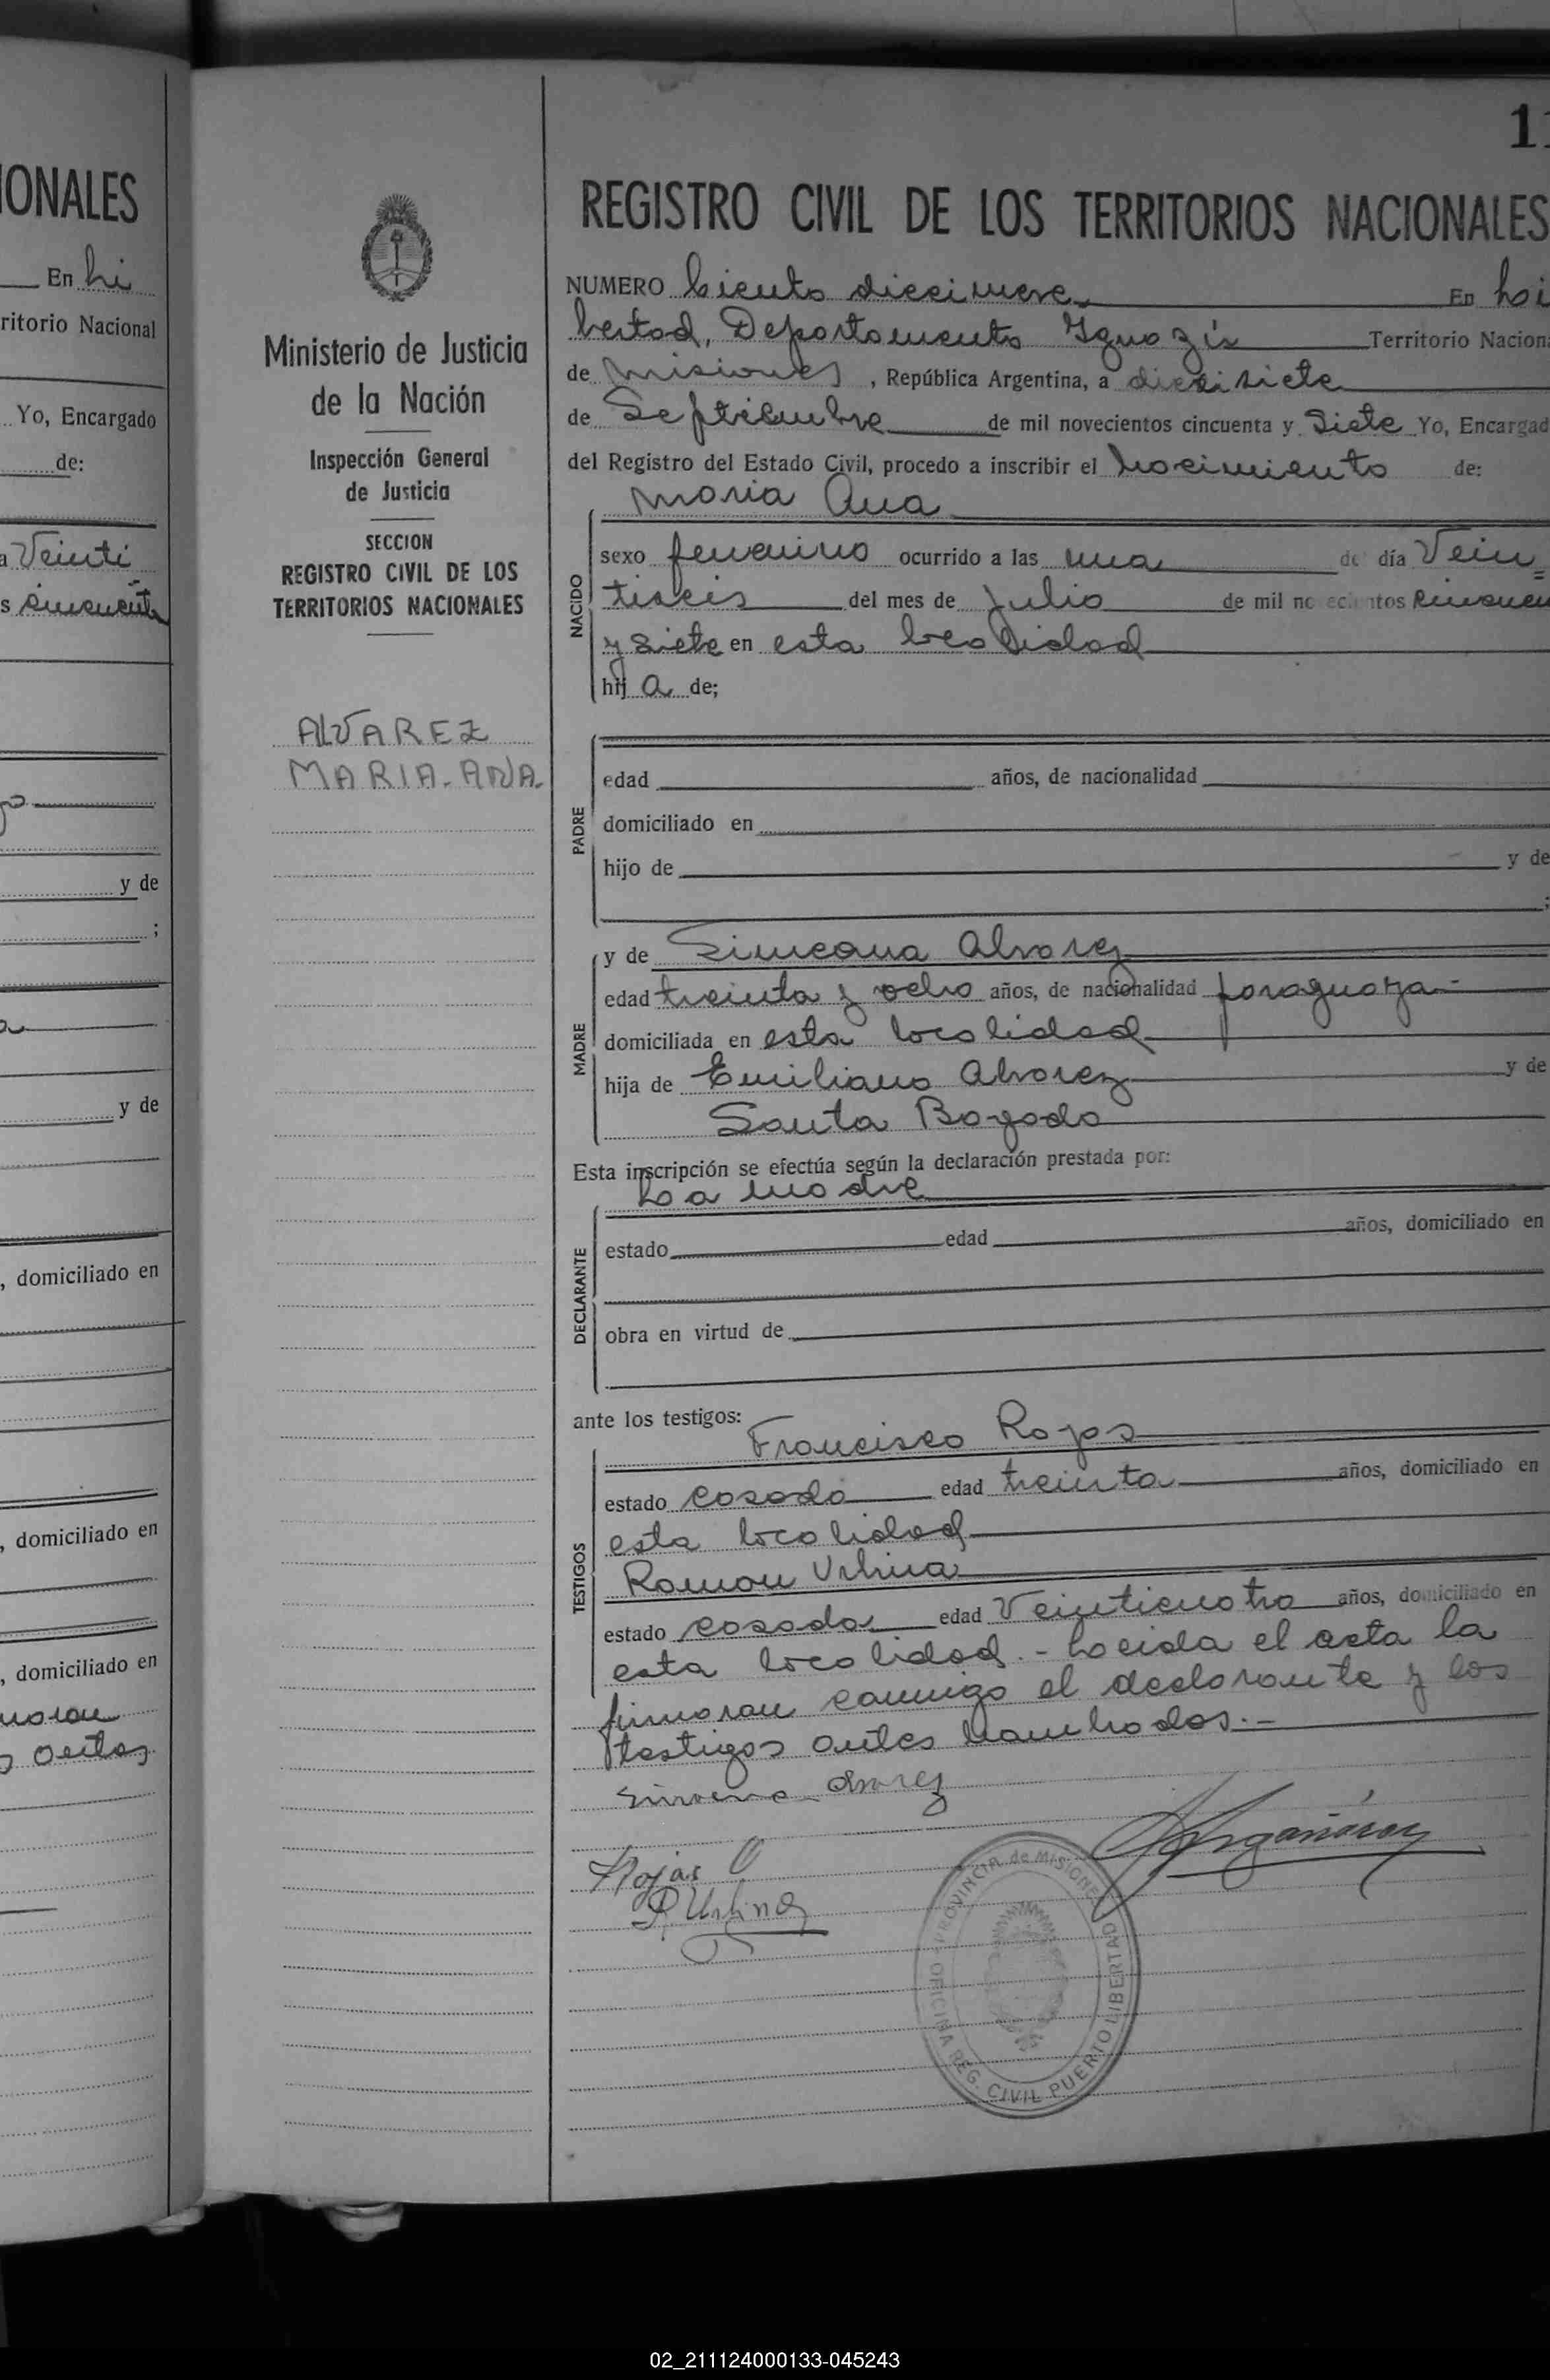 IONALES
En Li
ritorio Nacional
Yo, Encargado
de:
a Veinti
s cincuenta
y de
;
y de
, domiciliado en
, domiciliado en
, domiciliado en
Ministerio de Justicia
de la Nación
Inspección General
de Justicia
SECCION
REGISTRO CIVIL DE LOS
TERRITORIOS NACIONALES
ALVAREZ
MARIA-ANA.
11
REGISTRO CIVIL DE LOS TERRITORIOS NACIONALES
NUMERO Ciento diecinueve En Li
bertad, Departamento Iguazú Territorio Nacion
de Misiones, República Argentina, a diecisiete
de Septiembre de mil novecientos cincuenta y Siete Yo, Encargad
del Registro del Estado Civil, procedo a inscribir el Nacimiento de:
Maria Ana
NACIDO
sexo femenino ocurrido a las una de día Vein=
tiseis del mes de Julio de mil novecientos cincuen
y siete en esta localidad
hij a de;
PADRE
edad años, de nacionalidad
domiciliado en
hijo de y de
;
MADRE
y de Simeana Alvarez
edad treinta y ocho años, de nacionalidad paraguaya.-
domiciliada en esta localidad
hija de Emiliano Alvarez y de
Santa Bogado
Esta inscripción se efectúa según la declaración prestada por:
La madre
DECLARANTE
estado edad años, domiciliado en
obra en virtud de
ante los testigos:
TESTIGOS
Francisco Rojas
estado casado edad treinta años, domiciliado en
esta localidad
Ramon Urbina
estado casado edad Veinticuatro años, domiciliado en
esta localidad.- Leeida el acta la
firmaran conmigo el declarante y los
testigos antes nombrados.-
Alvarez
Rojas
R Urbina
PROVINCIA de MISIONES
OFICINA REG. CIVIL PUERTO LIBERTAD
02_211124000133-045243